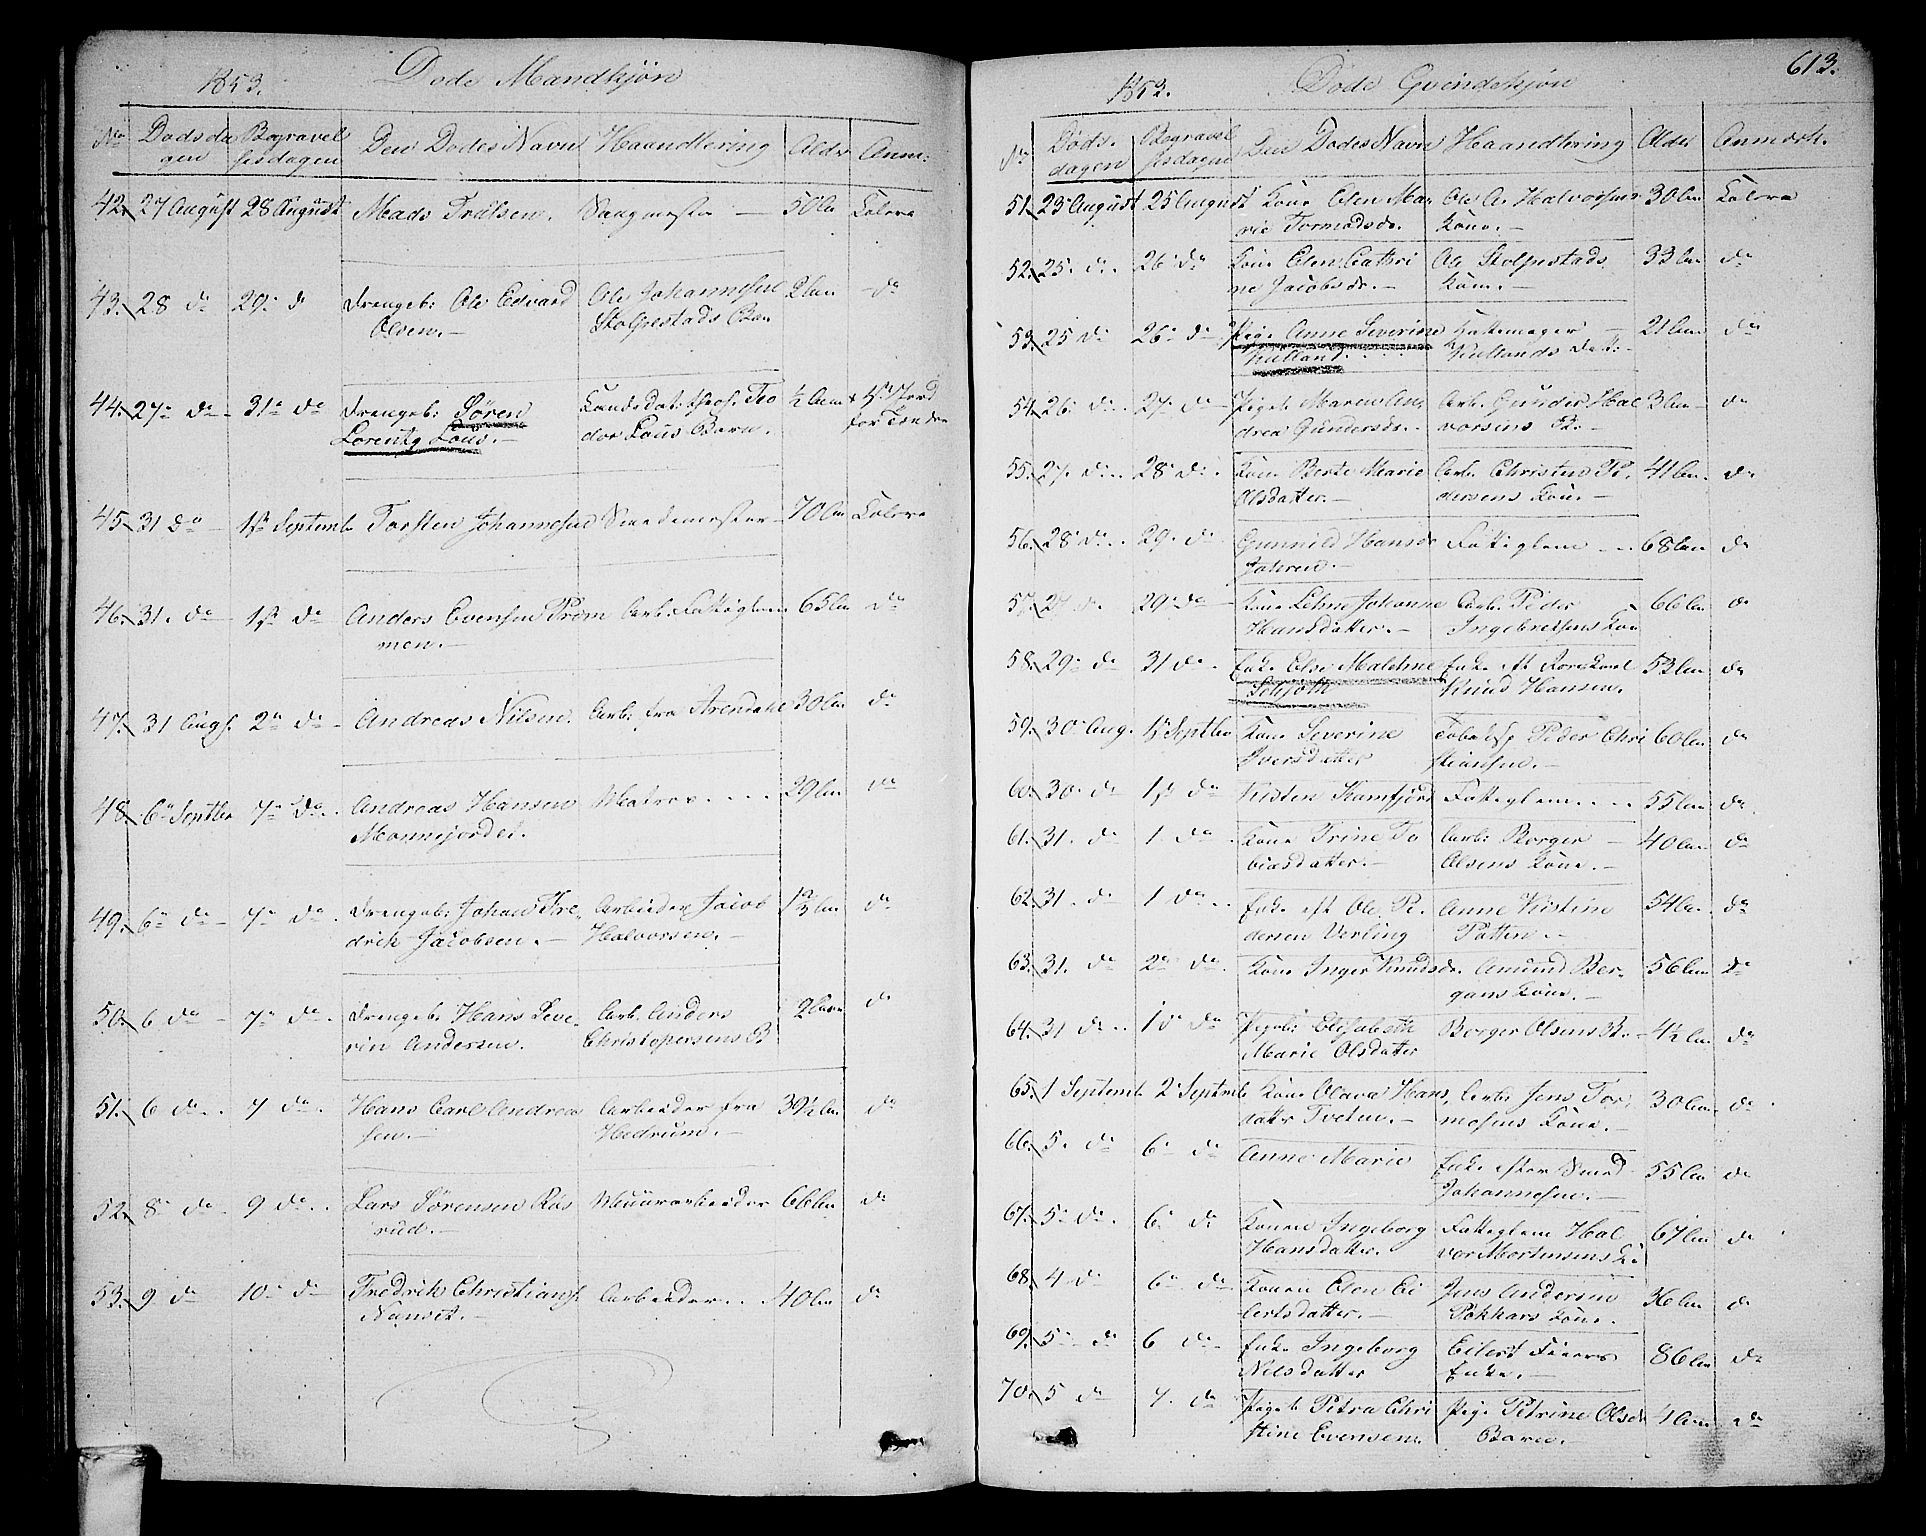 1853. Døde Mandkjön
No Dødsda Begravel Den Dødes Navn Haandtering Alder Anm:
gen sesdagen
42. 27 August 28 August Mads Trulsen. 50 Aar Kolera
43. 28 do 29 do Drengeb: Ole Edvard Ole Johannesens 2 Aar do
Olsen. Stolpestads Barn
44. 27 do 31 do Drengeb: Sören Candidat theol. Teo ½ Aar
Lorentz Lous. dor Lous Barn.
45. 31 do 1ste Septemb Torsten Johannesen Smedemester 70 Aar Kolera
46. 31. do 1ste do Anders Evensen Prom Arb: Fattiglem 65 Aar do
men.
47. 31 Augs. 2 do Andreas Nilsen. Arb: fra Arendahl 30 Aar do
48. 6 Septbr 7 do Andreas Hansen Matros 29 Aar do
Mannejordet.
49. 6 do 7 do Drengeb: Johan Fre Arbeider Jacob 1½ Aar do
drik Jacobsen. Halvorsen.
50. 6 do 7 do Drengeb: Hans Seve Arb. Anders 2 Aar do
rin Andersen. Christophersens B
51. 6 do 7 do Hans Carl Andrea Arbeider fra 39½ Aar do
sen. Hedrum.
52. 8 do 9 do Lars Sörensen Rös Muurarbeider 66 Aar do
rud.
53. 9 do 10 do Fredrik Christians. Arbeider 40 Aar do
Nanset.
613.
1853. Døde Qvindekjön
No Døds Begravel Den Dødes Navn Haandtering Alder Anmerk.
dagen sesdagen
51. 23 August 25 August Kone Olen Ma Ole A. Halvorsens 30 Aar Kolera
rie Tormodsdr. Kone.
52. 25. do 26 do Kone Elen Cathri Ole Stolpestads 33 Aar do
ne Jacobsdr. Kone.
53. 25 do 26 do Pige Anne Severine 21 Aar do
Kielland. Kiellands Datt:
54. 26 do 27 do Pigeb. Maren An Arb. Gunder Hal 3 Aar do
drea Gundersdr. vorsens B.
55. 27. do 28 do Kone Berte Marie Arb. Christen Pe 41 Aar do
Olsdatter. dersens Kone.
56. 28 do 29 do Gunnild Hansdr Fattiglem 68 Aar do
Johren.
57. 27 do 29 do Kone Lehne Johanne Arb. Peder 66 Aar do
Hansdatter. Ingebretsens Kone
58. 29 do 31 do Enke Else Malehne Enke eft 53 Aar do
Schjöth Knud Hansen.
59. 30 Aug. 1 Septbr Kone Severine Peder Chri 60 Aar do
Iversdatter stiansen.
60. 30 do 1ste do Kisten Kamfjord Fattiglem 55 Aar do
61. 31. do 1 do Kone Trine To Arb: Borger 40 Aar do
biasdatter. Olsens Kone.
62. 31. do 1 do Enke eft Ole Pe Anne Kistine 54 Aar do
dersen Verling Patten.
63. 31. do 2 do Kone Inger Knudsdr. Amund Ber 56 Aar do
gans Kone.
64. 31 do 1 do Pigeb: Elisabeth Borger Olsens B. 4½ Aar do
Marie Olsdatter
65. 1 Septemb 2 Septemb Kone Olava Hans Arb. Jens Tor 30 Aar do
datter Tveten. mosens Kone.
66. 5. do 6 do Anne Marie Enke efter Smed 55 Aar do
Johannesen.
67. 5 do 6 do Konen Ingeborg Fattiglem Hal 67 Aar do
Hansdatter. vor Mortensens K.
68. 4 do 6 do Konen Olen Ei Jens Andersen 36 Aar do
lertsdatter. Pokhars Kone.
69. 5 do 6 do Enke Ingeborg Eilert 86 Aar do
Nilsdatter Enke.
70. 5 do 7. do Pigeb Petra Chri Pige Petrine Olsdr 4 Aar do
stine Evensen. Barn.